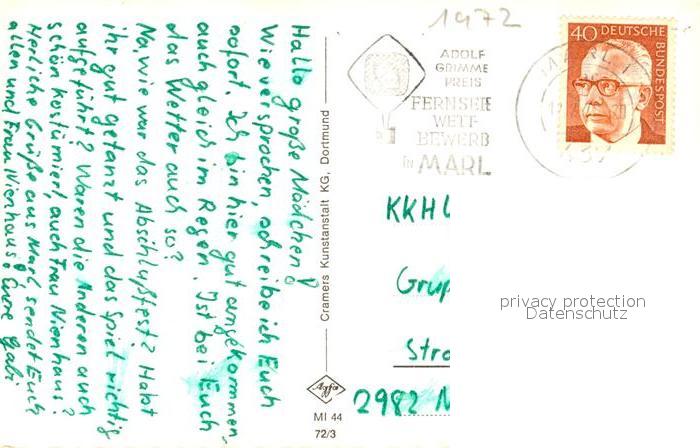 1972
ADOLF
GRIMME
PREIS
FERNSEH
WETT-
BEWERB
in MARL
MARL 1
40 DEUTSCHE
BUNDESPOST
Hallo große Mädchen!
Wie versprochen, schreibe ich Euch
sofort. Ich bin hier gut angekommen,
auch gleich im Regen. Ist bei Euch
das Wetter auch so?
Na, wie war das Abschlußfest? Habt
ihr gut getanzt und das Spiel richtig
aufgeführt? Waren die Anderen auch
schön kostümiert, auch Frau Nienhaus?
Herliche Grüße aus Marl sendet Euch
allen und Frau Nienhaus: Eure Gabi
Cramers Kunstanstalt KG, Dortmund
KKH
Grup
Stra
2982 N
privacy protection
Datenschutz
Agfa
MI 44
72/3